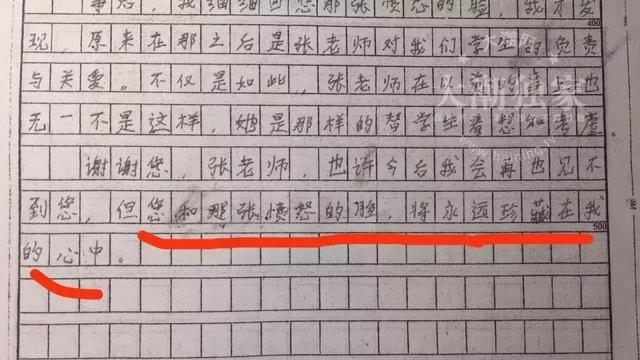 事后，我细细回想那张愤怒的脸，我才发
400
现，原来在那之后是张老师对我们学生的负责
与关爱。不仅是如此，张老师在以前的事上也
无一不是这样，她是那样的替学生着想和考虑
谢谢您，张老师，也许今后我会再也见不
到您，但您和那张愤怒的脸，将永远珍藏在我
500
的心中。
大潮独家